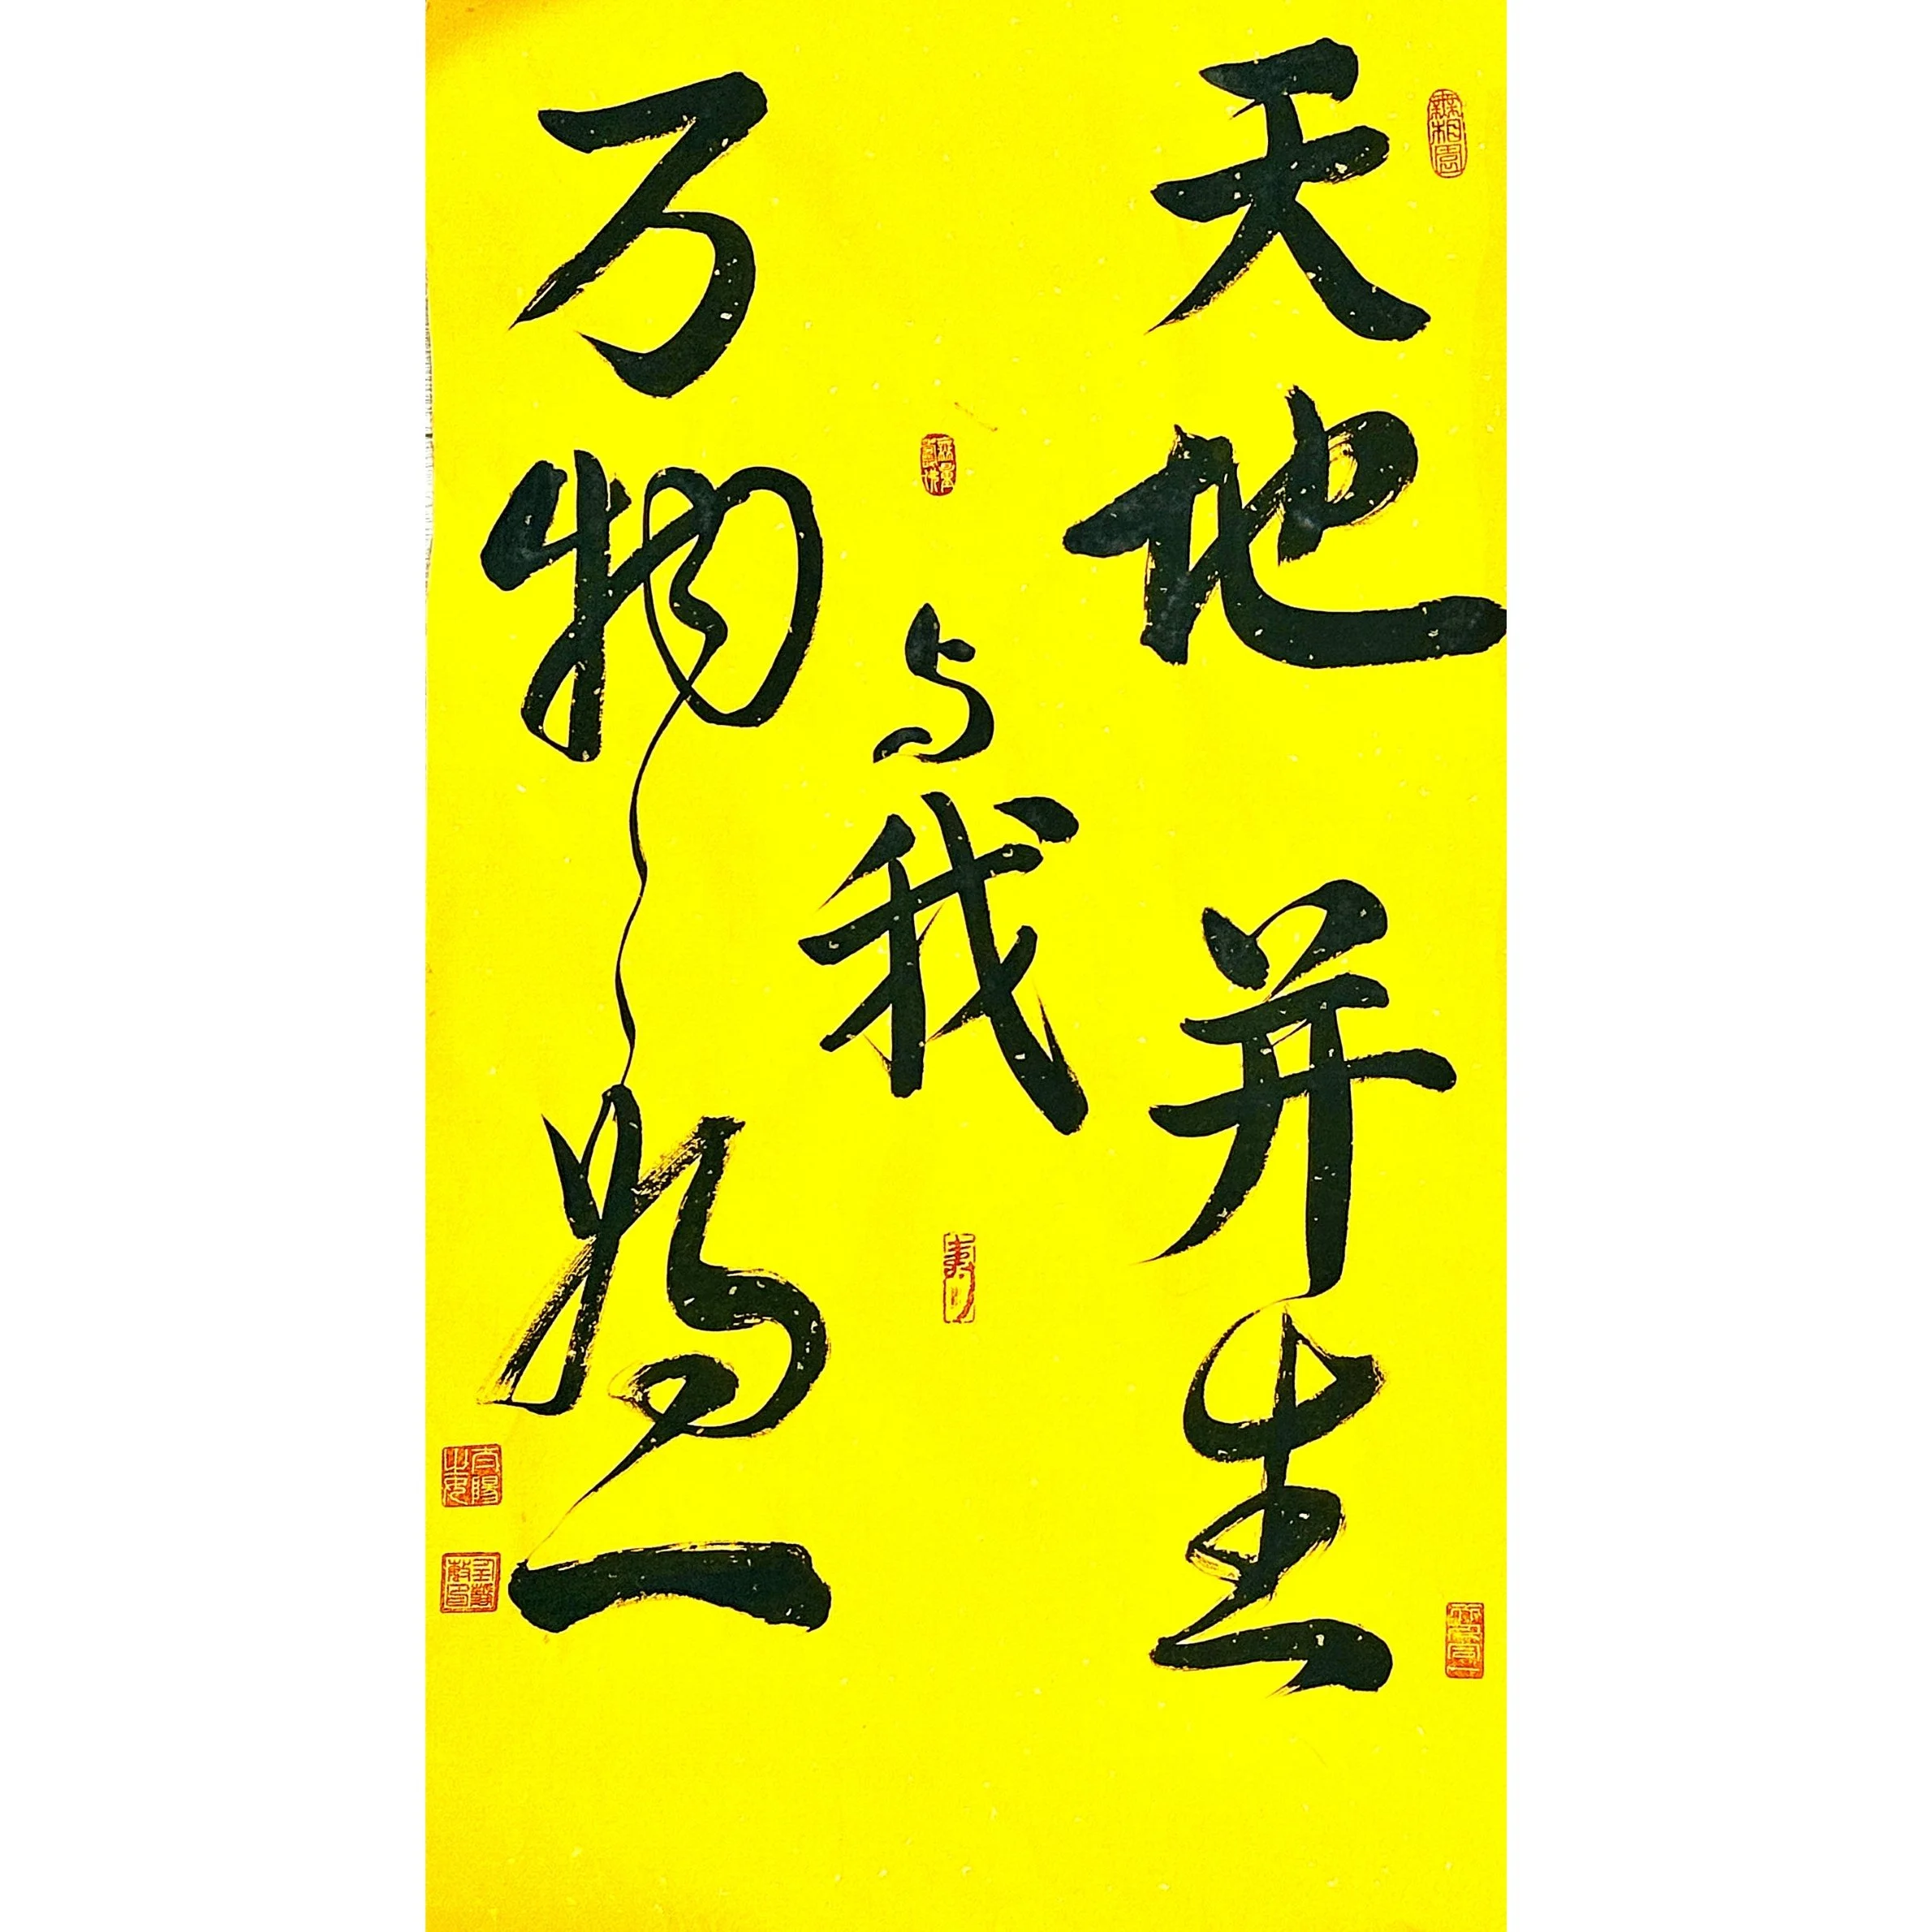 天地并生
与我
万物为一